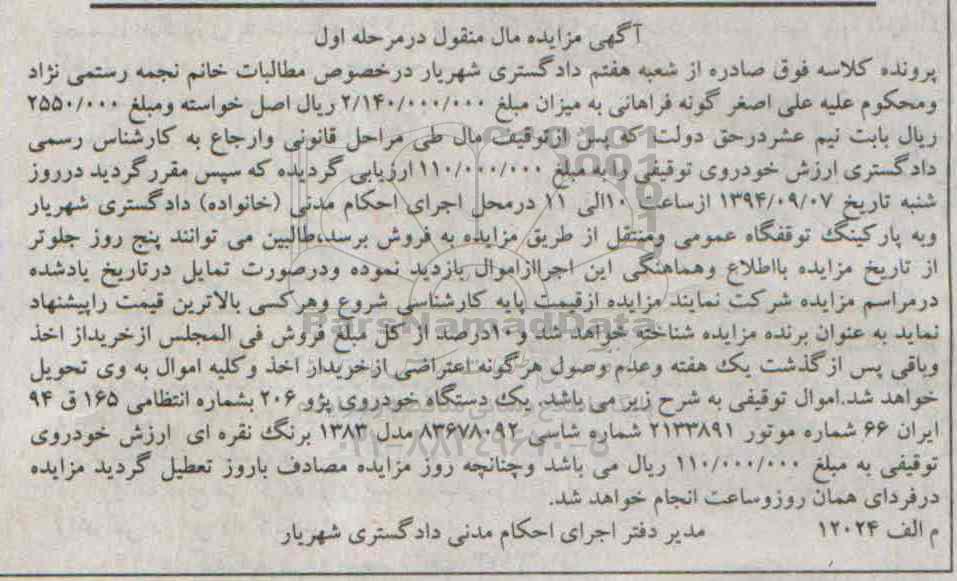 آگهی مزایده مال منقول درمرحله اول
پرونده کلاسه فوق صادره از شعبه هفتم دادگستری شهریار درخصوص مطالبات خانم نجمه رستمی نژاد
ومحکوم علیه علی اصغر گونه فراهانی به میزان مبلغ ۲/۱۴۰/۰۰۰/۰۰۰ ریال اصل خواسته ومبلغ ۲۵۵۰/۰۰۰
ریال بابت نیم عشردرحق دولت که پس ازتوقیف مال طی مراحل قانونی وارجاع به کارشناس رسمی
دادگستری ارزش خودروی توقیفی را به مبلغ ۱۱۰/۰۰۰/۰۰۰ ارزیابی گردیده که سپس مقررگردید درروز
شنبه تاریخ ۱۳۹۴/۰۹/۰۷ ازساعت ۱۰الی ۱۱ درمحل اجرای احکام مدنی (خانواده) دادگستری شهریار
وبه پارکینگ توقفگاه عمومی ومنتقل از طریق مزایده به فروش برسد،طالبین می توانند پنج روز جلوتر
از تاریخ مزایده بااطلاع وهماهنگی این اجراازاموال بازدید نموده ودرصورت تمایل درتاریخ یادشده
درمراسم مزایده شرکت نمایند مزایده ازقیمت پایه کارشناسی شروع وهرکسی بالاترین قیمت راپیشنهاد
نماید به عنوان برنده مزایده شناخته خواهد شد و۱۰درصد از کل مبلغ فروش فی المجلس ازخریداز اخذ
وباقی پس ازگذشت یک هفته وعدم وصول هرگونه اعتراضی ازخریدار اخذ وکلیه اموال به وی تحویل
خواهد شد.اموال توقیفی به شرح زیر می باشد. یک دستگاه خودروی پژو ۲۰۶ بشماره انتظامی ۱۶۵ ق ۹۴
ایران ۶۶ شماره موتور ۲۱۳۳۸۹۱ شماره شاسی ۸۳۶۷۸۰۹۲ مدل ۱۳۸۳ برنگ نقره ای ارزش خودروی
توقیفی به مبلغ ۱۱۰/۰۰۰/۰۰۰ ریال می باشد وچنانچه روز مزایده مصادف باروز تعطیل گردید مزایده
درفردای همان روزوساعت انجام خواهد شد.
م الف ۱۲۰۲۴ مدیر دفتر اجرای احکام مدنی دادگستری شهریار
ParsNamadData